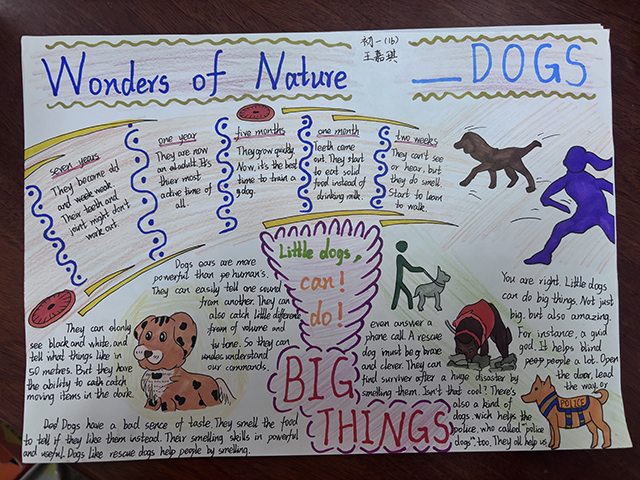 初一(16)
王嘉琪
Wonders of Nature
DOGS
seven years
They become old
and week weak
Their teeth and
joint might don't
work out.
one year
They are now
an aduldt. It's
thier most
active time of
all.
five months
They grow quickly
Now, it's the best
time to train a
gdog.
one month
Teeth came
out. They start
to eat solid
food instead of
drinking milk.
two weeks
They can't see
or hear, but
they do smell.
Start to learn
to walk.
Dogs ears are more
powerful than human's.
They can easily tell one sound
from another. They can
also catch little different
from of volume and
tone. So they can
understand
our commands.
They can only
see black and white, and
tell what things like in
50 metres. But they have
the ability to catch
moving items in the dark.
Dogs have a bad sense of taste. They smell the food
to tell if they like them instead. Their smelling skills in powerful
and useful. Dogs like rescue dogs help people by smelling.
Little dogs,
can!
do!
BIG
THINGS
You are right. Little dogs
can do big things. Not just
big, but also amazing.
For instance, a guid
god. It helps blind
people a lot. Open
the door, lead
the way, or
even answer a
phone call. A rescue
dog must be brave
and clever. They can
find surviver after a huge disaster by
smelling them. Isn't that cool? There's
also a kind of
dogs wich helps the
police, who called "police
dogs" too. They all help us
POLICE